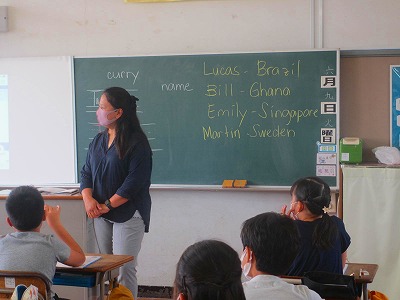 curry
name
Lucas - Brazil
Bill - Ghana
Emily - Singapore
Martin - Sweden
月
日
曜